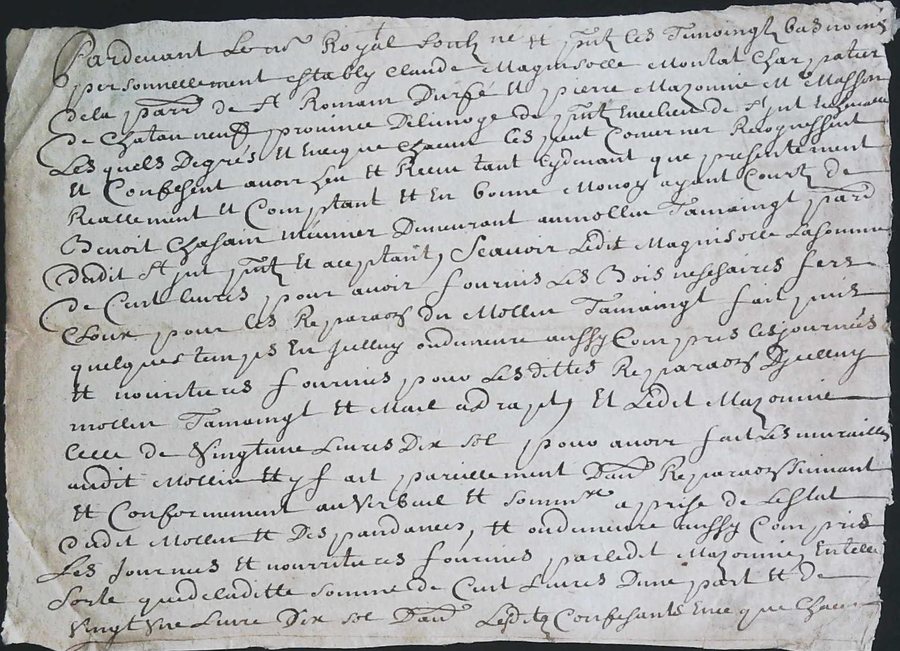 Pardevant Le nore Royal soubz né et pntz les Temoingtz bas només
personnellement estably Claude Magnisolle Montat Charpatier
dela parr de st Romain Durfé et pierre Mazonnie Me Masson
de Chatauneuff province Delimoge de pntz
Les quels Degrés et Enecque chacun les peut Conserner
et Confesent avoir heu et Receu tant Cydevant que presentement
Reallement et Comptant et En bonne Monoy ayant Courtz de
Benoit Chasain meunier Demeurant aumollin Tamaingt parr
dudit st jut pntz et aceptant, Scavoir Ledit Magnisolle Lasomme
de Cent livres pour avoir fournis Les Bois nessesaires fert
Cloux pour les Reparaos du Mollin Tamaingt fait puis
quelques temps En juelluy ondemeure aussy Compris les journées
et nouritures fournies pour Lesdittes Reparaos Djuelluy
mollin Tamaingt et Mail adrapt, Et Ledit Mazonnie
Celle de Vingtune Livres Dix sol pour avoir fait Les murailles
audit Mollin et y fait pareillement Dautz Reparaos suivant
et Conformement auverbail et somm a prise de Lestat
dudit Mollin et Des pandances, et ondemeure aussy Compris
Les Journées et nourritures fournies parledit Mazonnie, Entelle
sorte quedeladitte somme de Cent Livres Dune part et de
Vingt Une Livre Dix sol Dautz Lesdits Confesants Enecque Chacun